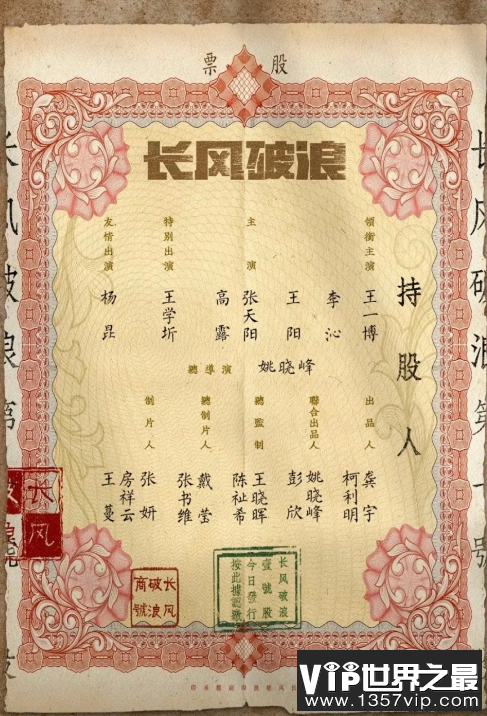 股票
长风破浪
持股人
領銜主演
王一博
李沁
主演
王阳
张天阳
高露
特别出演
王学圻
友情出演
杨昆
總導演
姚晓峰
出品人
龚宇
柯利明
聯合出品人
姚晓峰
彭欣
總監制
王晓晖
陈祉希
總制片人
戴莹
张书维
制片人
张妍
房祥云
王蔓
长风破浪第一号
长风破浪第
长风
长风破浪商號
长风破浪
壹號股
今日發行
按此據
VIP世界之最
www.1357vip.com